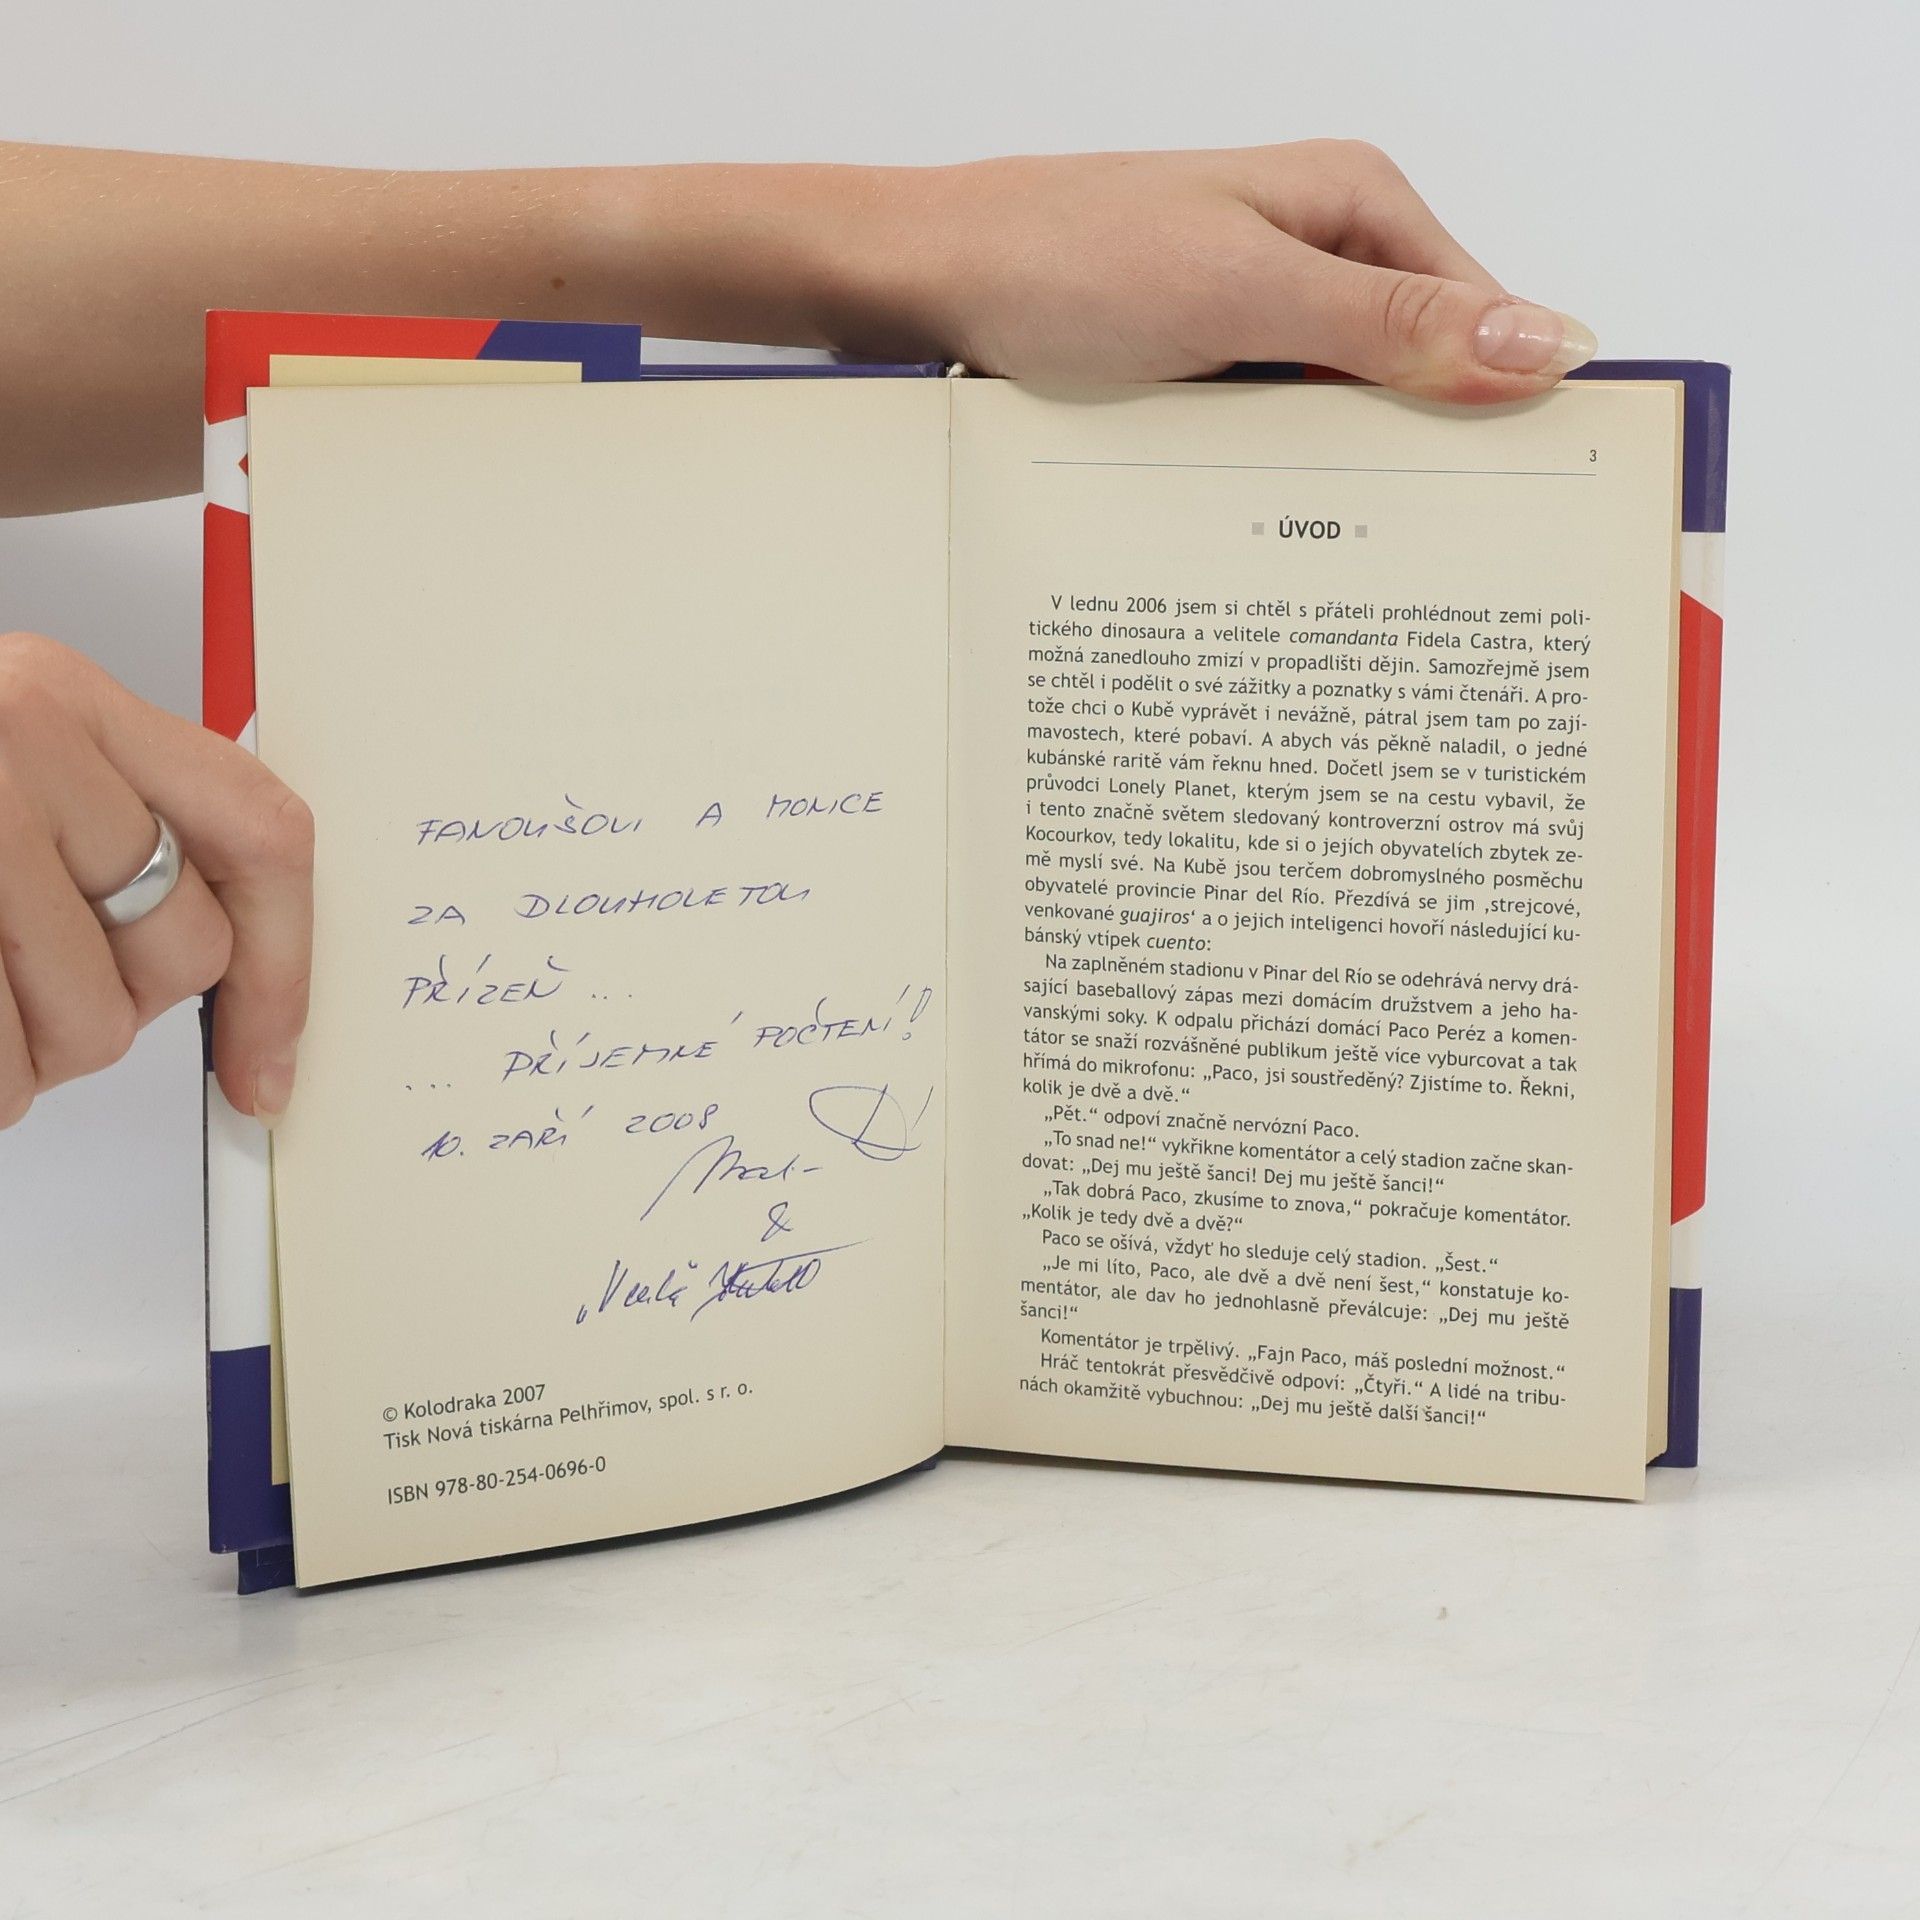 FANOUŠOVI A MONICE
ZA DLOUHOLETOU
PŘÍZEŇ ...
... PŘÍJEMNÉ POČTENÍ!
10. ZÁŘÍ 2008
&
© Kolodraka 2007
Tisk Nová tiskárna Pelhřimov, spol. s r. o.
ISBN 978-80-254-0696-0
3
ÚVOD
V lednu 2006 jsem si chtěl s přáteli prohlédnout zemi poli-
tického dinosaura a velitele comandanta Fidela Castra, který
možná zanedlouho zmizí v propadlišti dějin. Samozřejmě jsem
se chtěl i podělit o své zážitky a poznatky s vámi čtenáři. A pro-
tože chci o Kubě vyprávět i nevážně, pátral jsem tam po zají-
mavostech, které pobaví. A abych vás pěkně naladil, o jedné
kubánské raritě vám řeknu hned. Dočetl jsem se v turistickém
průvodci Lonely Planet, kterým jsem se na cestu vybavil, že
i tento značně světem sledovaný kontroverzní ostrov má svůj
Kocourkov, tedy lokalitu, kde si o jejích obyvatelích zbytek ze-
mě myslí své. Na Kubě jsou terčem dobromyslného posměchu
obyvatelé provincie Pinar del Río. Přezdívá se jim ‚strejcové,
venkované guajiros‘ a o jejich inteligenci hovoří následující ku-
bánský vtípek cuento:
Na zaplněném stadionu v Pinar del Río se odehrává nervy drá-
sající baseballový zápas mezi domácím družstvem a jeho ha-
vanskými soky. K odpalu přichází domácí Paco Peréz a komen-
tátor se snaží rozvášněné publikum ještě více vyburcovat a tak
hřímá do mikrofonu: „Paco, jsi soustředěný? Zjistíme to. Řekni,
kolik je dvě a dvě.“
„Pět.“ odpoví značně nervózní Paco.
„To snad ne!“ vykřikne komentátor a celý stadion začne skan-
dovat: „Dej mu ještě šanci! Dej mu ještě šanci!“
„Tak dobrá Paco, zkusíme to znova,“ pokračuje komentátor.
„Kolik je tedy dvě a dvě?“
Paco se ošívá, vždyť ho sleduje celý stadion. „Šest.“
„Je mi líto, Paco, ale dvě a dvě není šest,“ konstatuje ko-
mentátor, ale dav ho jednohlasně převálcuje: „Dej mu ještě
šanci!“
Komentátor je trpělivý. „Fajn Paco, máš poslední možnost.“
Hráč tentokrát přesvědčivě odpoví: „Čtyři.“ A lidé na tribu-
nách okamžitě vybuchnou: „Dej mu ještě další šanci!“